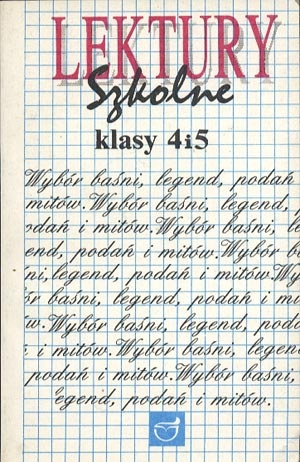 LEKTURY
Szkolne
klasy 4i5
Wybór baśni, legend, podań
mitów. Wybór baśni, legend,
odań i mitów. Wybór baśni, le
end, podań i mitów. Wybór b
ni, legend, podań i mitów. Wy
ór baśni, legend, podań i m
w. Wybór baśni, legend, poda
i mitów. Wybór baśni, legen
podań i mitów. Wybór baśni,
legend, podań i mitów.